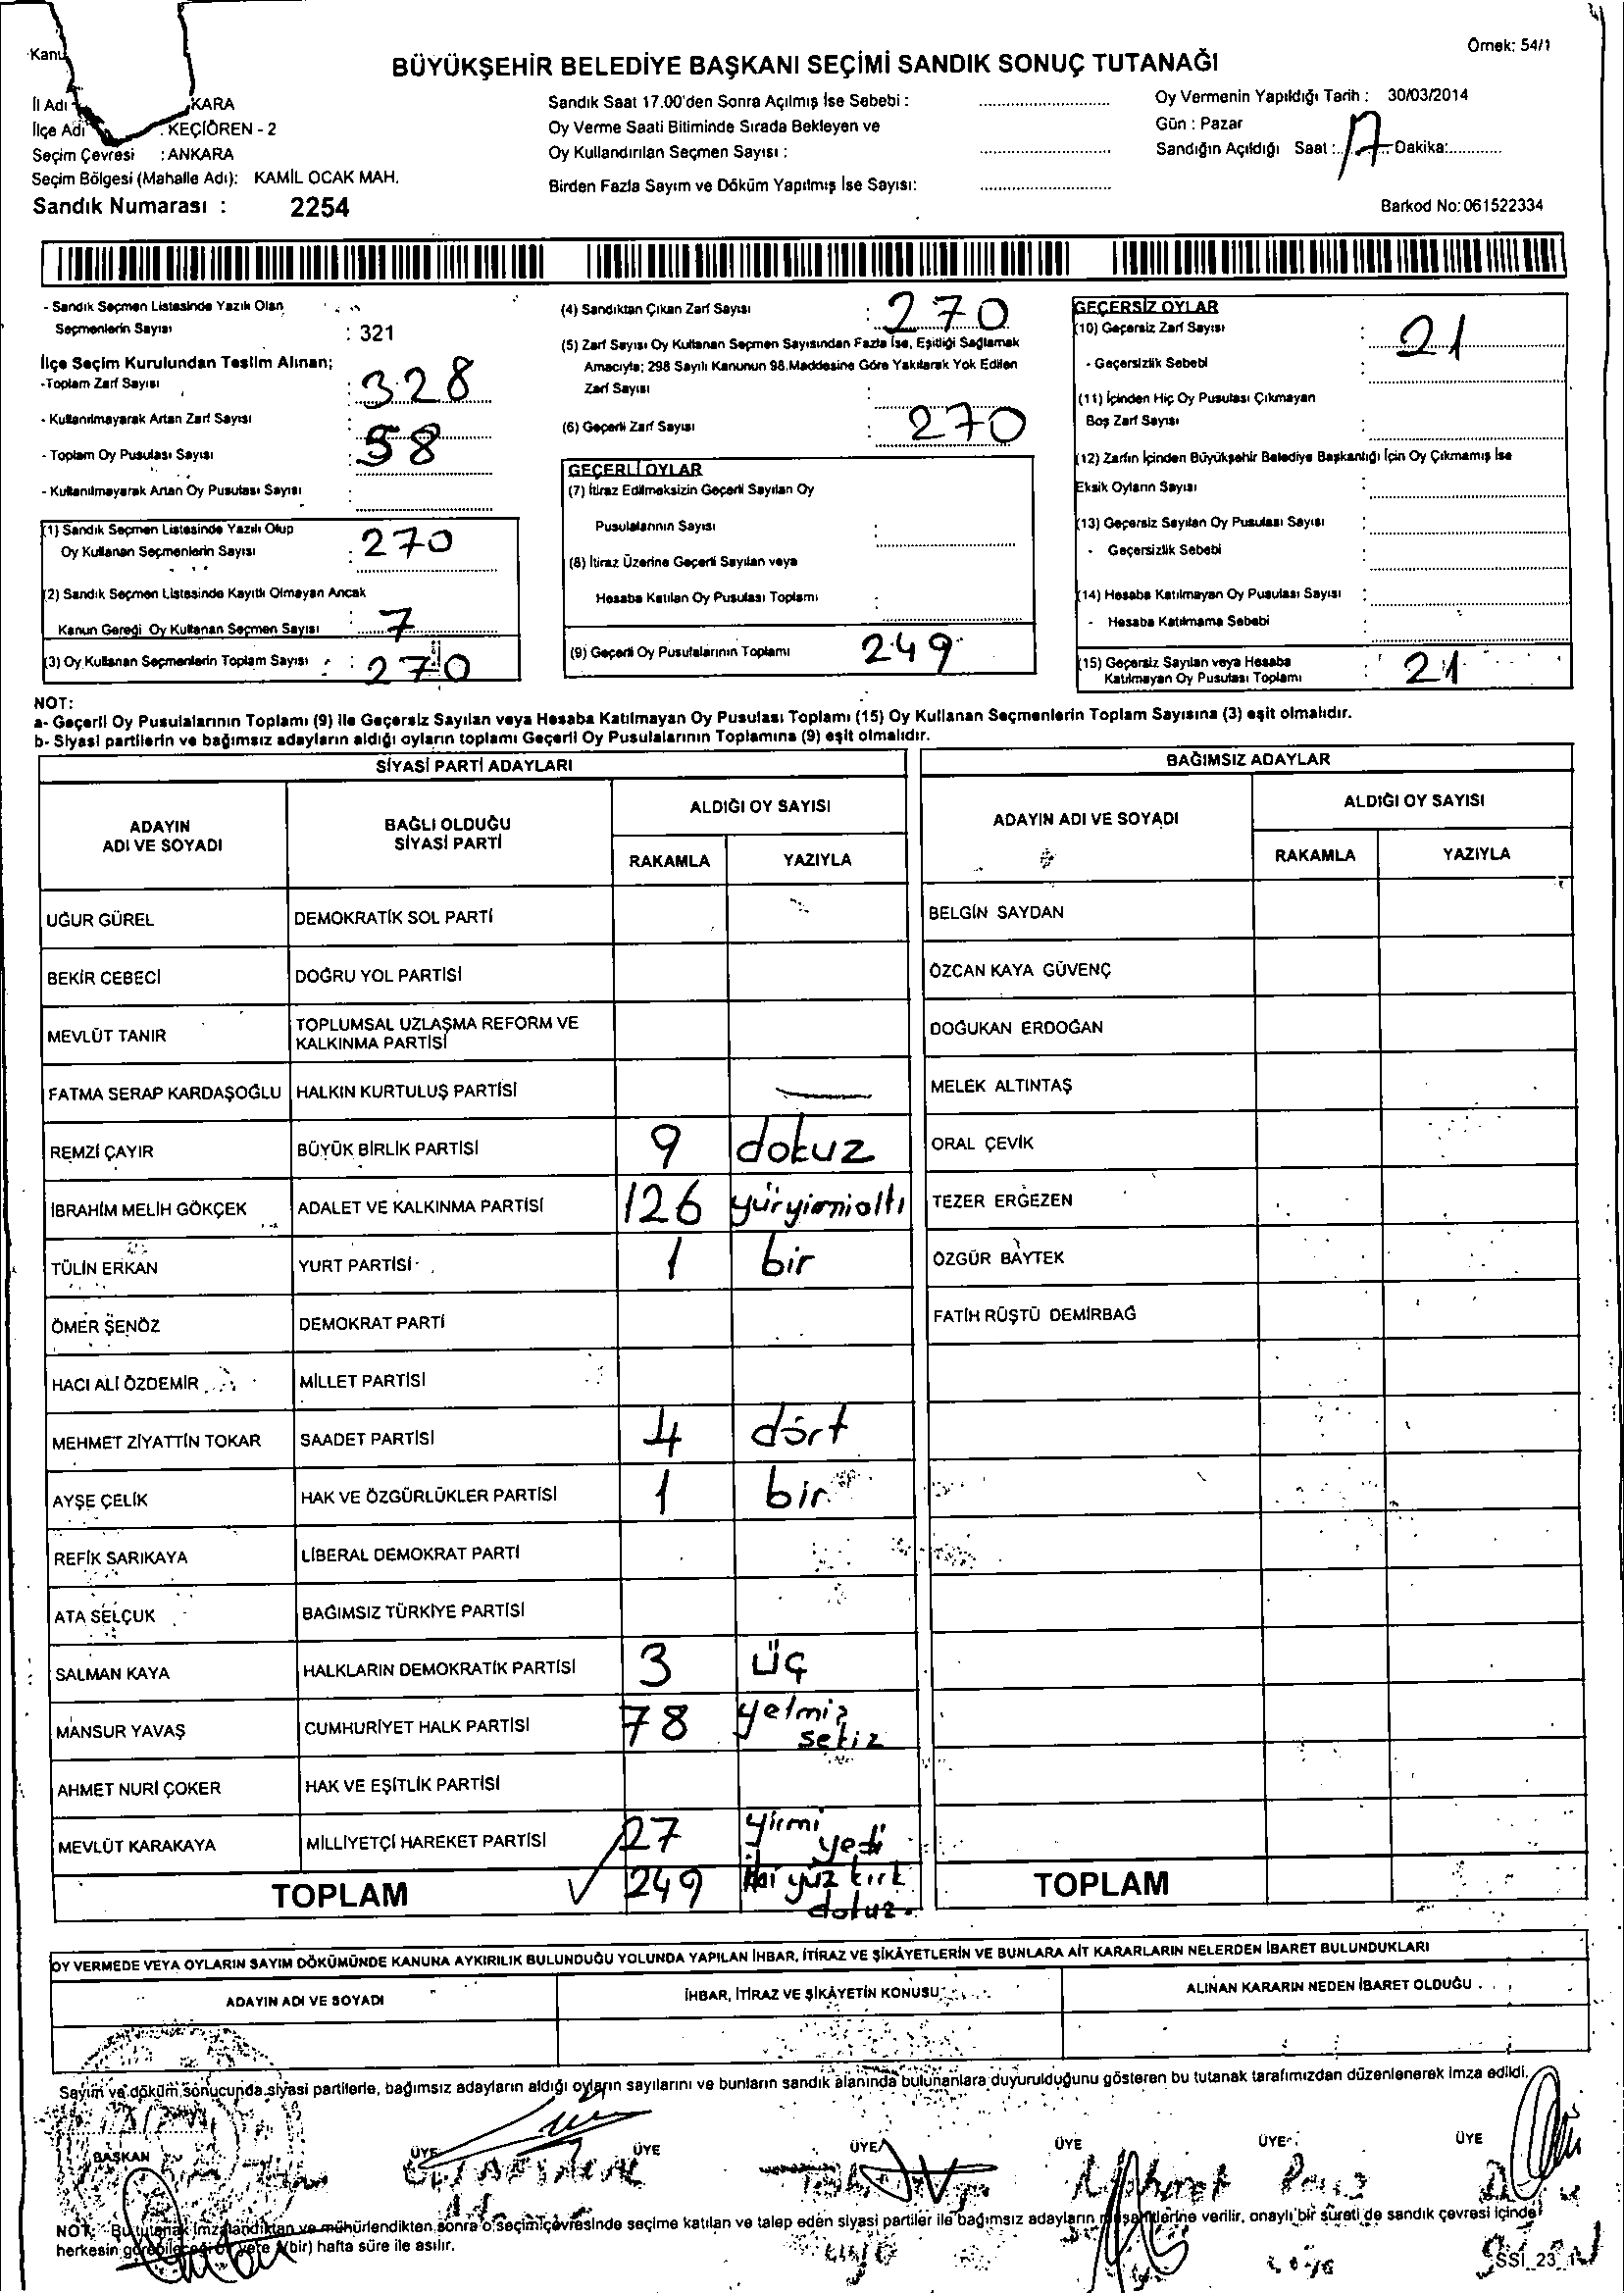 Örnek: 54/1
BÜYÜKŞEHİR BELEDİYE BAŞKANI SEÇİMİ SANDIK SONUÇ TUTANAĞI
İl Adı KARA
İlçe Adı : KEÇİÖREN - 2
Seçim Çevresi : ANKARA
Seçim Bölgesi (Mahalle Adı): KAMİL OCAK MAH.
Sandık Numarası : 2254
Sandık Saat 17.00'den Sonra Açılmış İse Sebebi :
Oy Verme Saati Bitiminde Sırada Bekleyen ve
Oy Kullandırılan Seçmen Sayısı :
Birden Fazla Sayım ve Döküm Yapılmış İse Sayısı:
Oy Vermenin Yapıldığı Tarih : 30/03/2014
Gün : Pazar
Sandığın Açıldığı Saat : 17 Dakika:
Barkod No: 061522334
- Sandık Seçmen Listesinde Yazılı Olan
Seçmenlerin Sayısı : 321
İlçe Seçim Kurulundan Teslim Alınan;
-Toplam Zarf Sayısı : 328
- Kullanılmayarak Artan Zarf Sayısı : 58
- Toplam Oy Pusulası Sayısı :
- Kullanılmayarak Artan Oy Pusulası Sayısı :
(1) Sandık Seçmen Listesinde Yazılı Olup
Oy Kullanan Seçmenlerin Sayısı : 270
(2) Sandık Seçmen Listesinde Kayıtlı Olmayan Ancak
Kanun Gereği Oy Kullanan Seçmen Sayısı : 7
(3) Oy Kullanan Seçmenlerin Toplam Sayısı : 270
(4) Sandıktan Çıkan Zarf Sayısı : 270
(5) Zarf Sayısı Oy Kullanan Seçmen Sayısından Fazla İse, Eşitliği Sağlamak
Amacıyla; 298 Sayılı Kanunun 98.Maddesine Göre Yakılarak Yok Edilen
Zarf Sayısı
(6) Geçerli Zarf Sayısı : 270
GEÇERLİ OYLAR
(7) İtiraz Edilmeksizin Geçerli Sayılan Oy
Pusulalarının Sayısı :
(8) İtiraz Üzerine Geçerli Sayılan veya
Hesaba Katılan Oy Pusulası Toplamı :
(9) Geçerli Oy Pusulalarının Toplamı 249
GEÇERSİZ OYLAR
(10) Geçersiz Zarf Sayısı : 21
- Geçersizlik Sebebi :
(11) İçinden Hiç Oy Pusulası Çıkmayan
Boş Zarf Sayısı :
(12) Zarfın İçinden Büyükşehir Belediye Başkanlığı İçin Oy Çıkmamış İse
Eksik Oyların Sayısı :
(13) Geçersiz Sayılan Oy Pusulası Sayısı :
- Geçersizlik Sebebi :
(14) Hesaba Katılmayan Oy Pusulası Sayısı :
- Hesaba Katılmama Sebebi :
(15) Geçersiz Sayılan veya Hesaba
Katılmayan Oy Pusulası Toplamı : 21
NOT:
a- Geçerli Oy Pusulalarının Toplamı (9) ile Geçersiz Sayılan veya Hesaba Katılmayan Oy Pusulası Toplamı (15) Oy Kullanan Seçmenlerin Toplam Sayısına (3) eşit olmalıdır.
b- Siyasi partilerin ve bağımsız adayların aldığı oyların toplamı Geçerli Oy Pusulalarının Toplamına (9) eşit olmalıdır.
SİYASİ PARTİ ADAYLARI
ADAYIN ADI VE SOYADI
BAĞLI OLDUĞU SİYASİ PARTİ
ALDIĞI OY SAYISI
RAKAMLA YAZIYLA
UĞUR GÜREL DEMOKRATİK SOL PARTİ
BEKİR CEBECİ DOĞRU YOL PARTİSİ
MEVLÜT TANIR TOPLUMSAL UZLAŞMA REFORM VE KALKINMA PARTİSİ
FATMA SERAP KARDAŞOĞLU HALKIN KURTULUŞ PARTİSİ
REMZİ ÇAYIR BÜYÜK BİRLİK PARTİSİ 9 dokuz
İBRAHİM MELİH GÖKÇEK ADALET VE KALKINMA PARTİSİ 126 yüryirmialtı
TÜLİN ERKAN YURT PARTİSİ 1 bir
ÖMER ŞENÖZ DEMOKRAT PARTİ
HACI ALİ ÖZDEMİR MİLLET PARTİSİ
MEHMET ZİYATTİN TOKAR SAADET PARTİSİ 4 dört
AYŞE ÇELİK HAK VE ÖZGÜRLÜKLER PARTİSİ 1 bir
REFİK SARIKAYA LİBERAL DEMOKRAT PARTİ
ATA SELÇUK BAĞIMSIZ TÜRKİYE PARTİSİ
SALMAN KAYA HALKLARIN DEMOKRATİK PARTİSİ 3 üç
MANSUR YAVAŞ CUMHURİYET HALK PARTİSİ 78 yetmiş sekiz
AHMET NURİ ÇOKER HAK VE EŞİTLİK PARTİSİ
MEVLÜT KARAKAYA MİLLİYETÇİ HAREKET PARTİSİ 27 yirmi yedi
TOPLAM 249 iki yüz kırk dokuz.
BAĞIMSIZ ADAYLAR
ADAYIN ADI VE SOYADI
ALDIĞI OY SAYISI
RAKAMLA YAZIYLA
BELGİN SAYDAN
ÖZCAN KAYA GÜVENÇ
DOĞUKAN ERDOĞAN
MELEK ALTINTAŞ
ORAL ÇEVİK
TEZER ERGEZEN
ÖZGÜR BAYTEK
FATİH RÜŞTÜ DEMİRBAĞ
TOPLAM
OY VERMEDE VEYA OYLARIN SAYIM DÖKÜMÜNDE KANUNA AYKIRILIK BULUNDUĞU YOLUNDA YAPILAN İHBAR, İTİRAZ VE ŞİKÂYETLERİN VE BUNLARA AİT KARARLARIN NELERDEN İBARET BULUNDUKLARI
ADAYIN ADI VE SOYADI İHBAR, İTİRAZ VE ŞİKÂYETİN KONUSU ALINAN KARARIN NEDEN İBARET OLDUĞU
Sayım ve döküm sonucunda siyasi partilerle, bağımsız adayların aldığı oyların sayılarını ve bunların sandık alanında bulunanlara duyurulduğunu gösteren bu tutanak tarafımızdan düzenlenerek imza edildi.
BAŞKAN ÜYE ÜYE ÜYE ÜYE ÜYE ÜYE
NOT: Bu tutanak imzalandıktan ve mühürlendikten sonra o seçim çevresinde seçime katılan ve talep eden siyasi partiler ile bağımsız adayların müşahitlerine verilir, onaylı bir sureti de sandık çevresi içinde
herkesin görebileceği bir yere 1(bir) hafta süre ile asılır.
SSİ_23_1